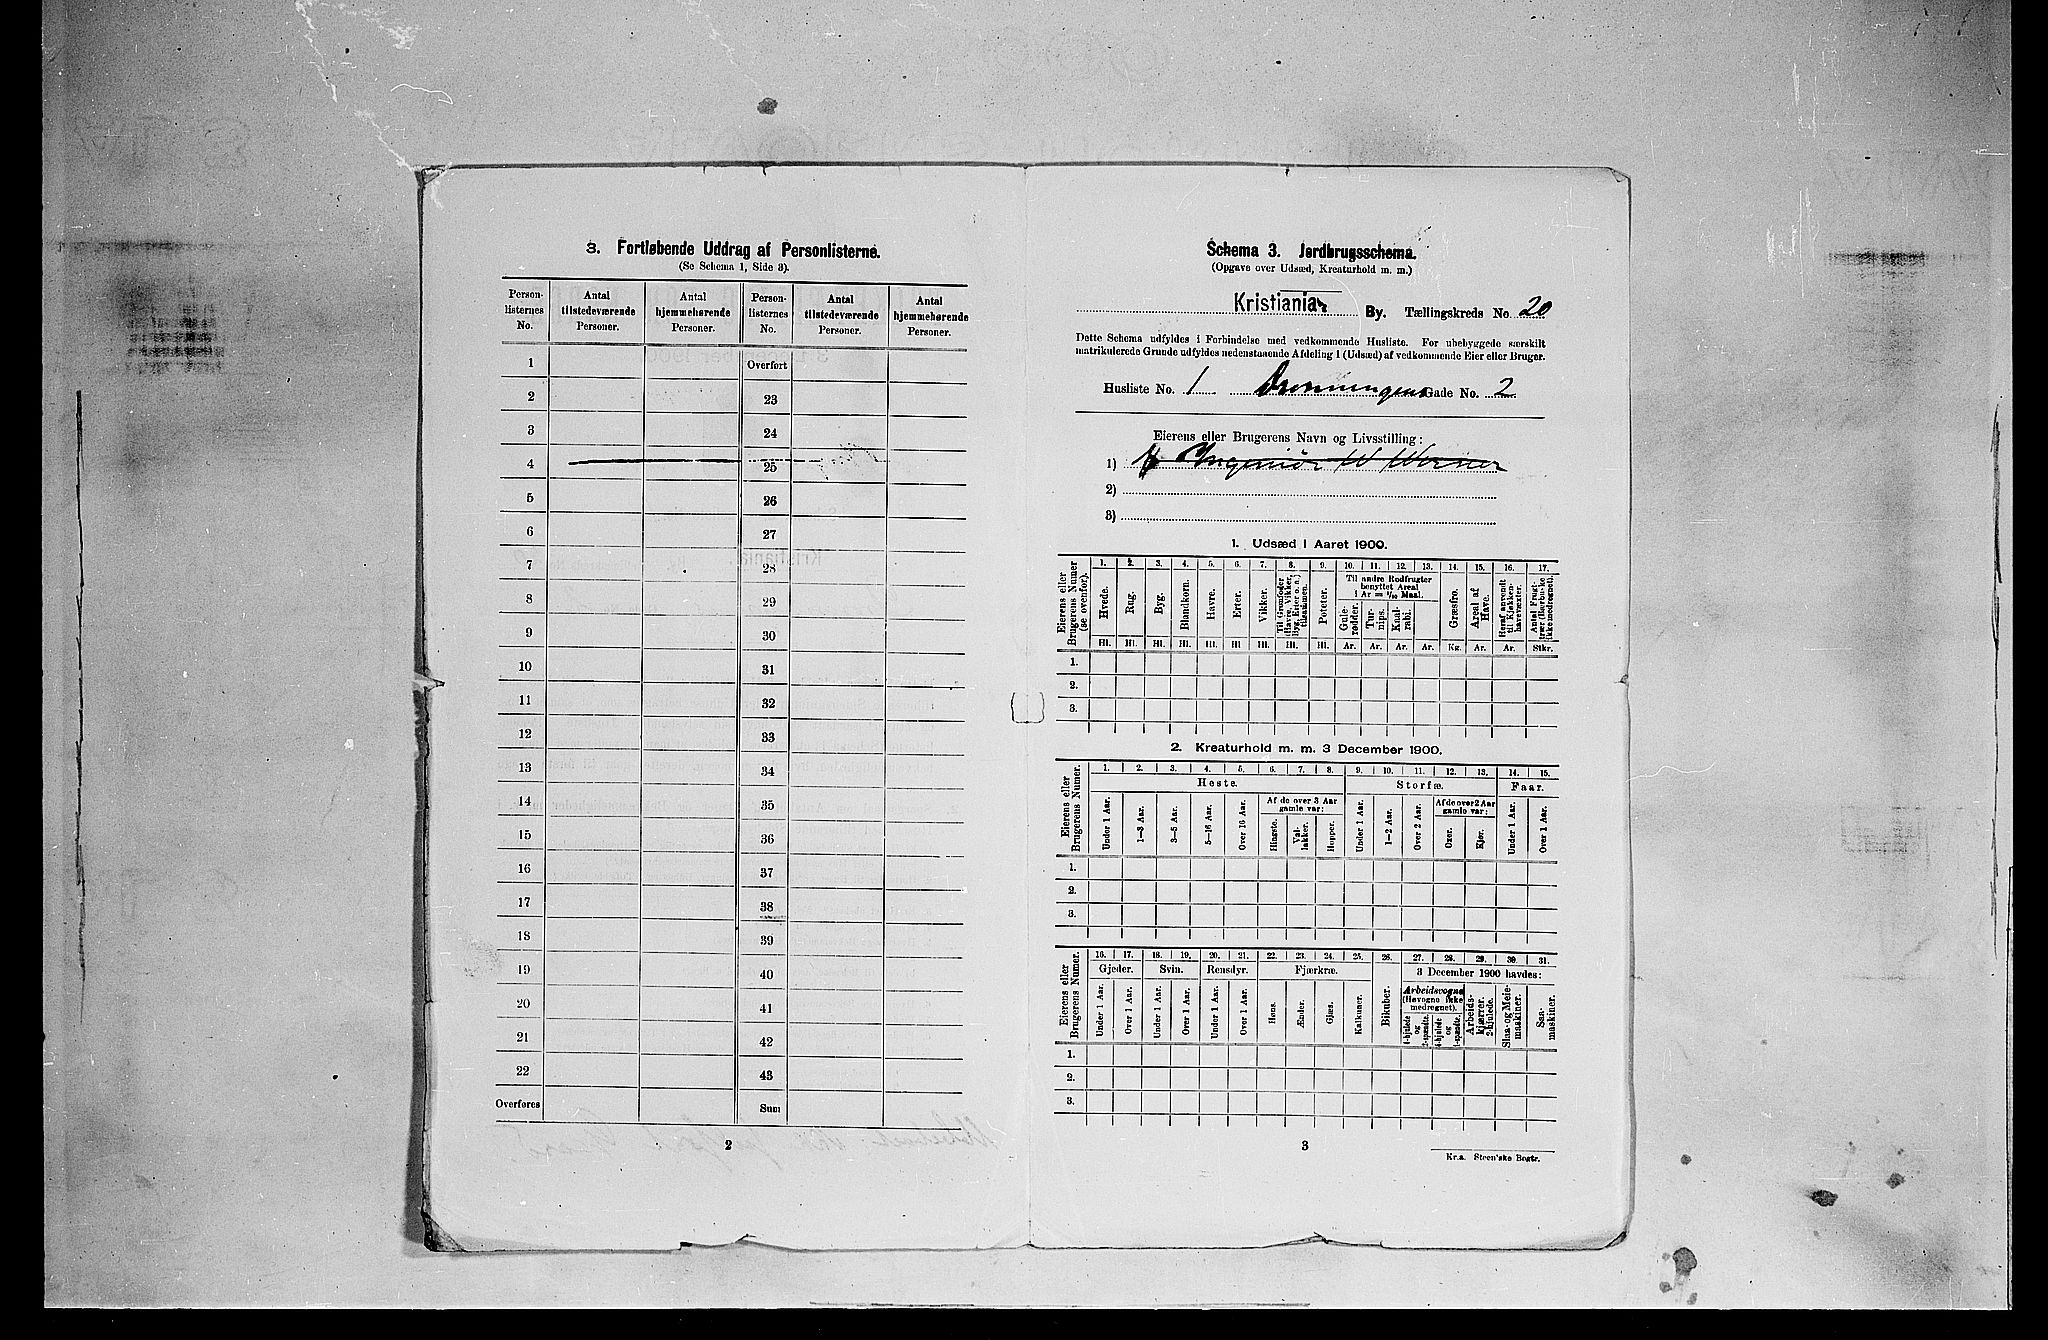 3. Fortløbende Uddrag af Personlisterne.
(Se Schema 1, Side 3).
Person-listernes No. Antal tilstedeværende Personer. Antal hjemmehørende Personer. Person-listernes No. Antal tilstedeværende Personer. Antal hjemmehørende Personer.
1 Overført
2 23
3 24
4 25
5 26
6 27
7 28
8 29
9 30
10 31
11 32
12 33
13 34
14 35
15 36
16 37
17 38
18 39
19 40
20 41
21 42
22 43
Overføres Sum
2
Schema 3. Jordbrugsschema.
(Opgave over Udsæd, Kreaturhold m. m.)
Kristiania By. Tællingskreds No. 20
Dette Schema udfyldes i Forbindelse med vedkommende Husliste. For ubebyggede særskilt
matrikulerede Grunde udfyldes nedenstaaende Afdeling 1 (Udsæd) af vedkommende Eier eller Bruger.
Husliste No. 1 Dronningens Gade No. 2
Eierens eller Brugerens Navn og Livsstilling:
1) Ingeniør W Werner
2)
3)
1. Udsæd i Aaret 1900.
Eierens eller Brugerens Numer (se ovenfor).
1. 2. 3. 4. 5. 6. 7. 8. 9. 10. 11. 12. 13. 14. 15. 16. 17.
Til andre Rodfrugter benyttet Areal i Ar = 1/10 Maal.
Hvede. Rug. Byg. Blandkorn. Havre. Erter. Vikker. Til Grønfoder (Havre, Vikker, Byg, Erter o. a.) tilsammen. Poteter. Gule-rødder. Tur-nips. Kaal-rabi. Græsfrø. Areal af Have. Heraf anvendt til Kjøkken-havevæxter. Antal Frugt-trær (Bærbuske ikke medregnet).
Hl. Hl. Hl. Hl. Hl. Hl. Hl. Hl. Hl. Ar. Ar. Ar. Ar. Kg. Ar. Ar. Stkr.
1.
2.
3.
2. Kreaturhold m. m. 3 December 1900.
Eierens eller Brugerens Numer.
1. 2. 3. 4. 5. 6. 7. 8. 9. 10. 11. 12. 13. 14. 15.
Heste. Storfæ. Faar.
Af de over 3 Aar gamle var: Af de over 2 Aar gamle var:
Under 1 Aar. 1—3 Aar. 3—5 Aar. 5—16 Aar. Over 16 Aar. Hingste. Val-lakker. Hopper. Under 1 Aar. 1—2 Aar. Over 2 Aar. Oxer. Kjør. Under 1 Aar. Over 1 Aar.
1.
2.
3.
Eierens eller Brugerens Numer.
16. 17. 18. 19. 20. 21. 22. 23. 24. 25. 26. 27. 28. 29. 30. 31.
Gjeder. Svin. Rensdyr. Fjærkræ. 3 December 1900 havdes:
Arbeidsvogne (Høvogne ikke medregnet).
Under 1 Aar. Over 1 Aar. Under 1 Aar. Over 1 Aar. Under 1 Aar. Over 1 Aar. Høns. Ænder. Gjæs. Kalkuner. Bikuber. 4-hjulede og 2-spændte. 4-hjulede og 1-spændte. Arbeids-kjærrer, 2-hjulede. Slaa- og Meie-maskiner. Saa-maskiner.
1.
2.
3.
3
Kr.a. Steen'ske Bogtr.